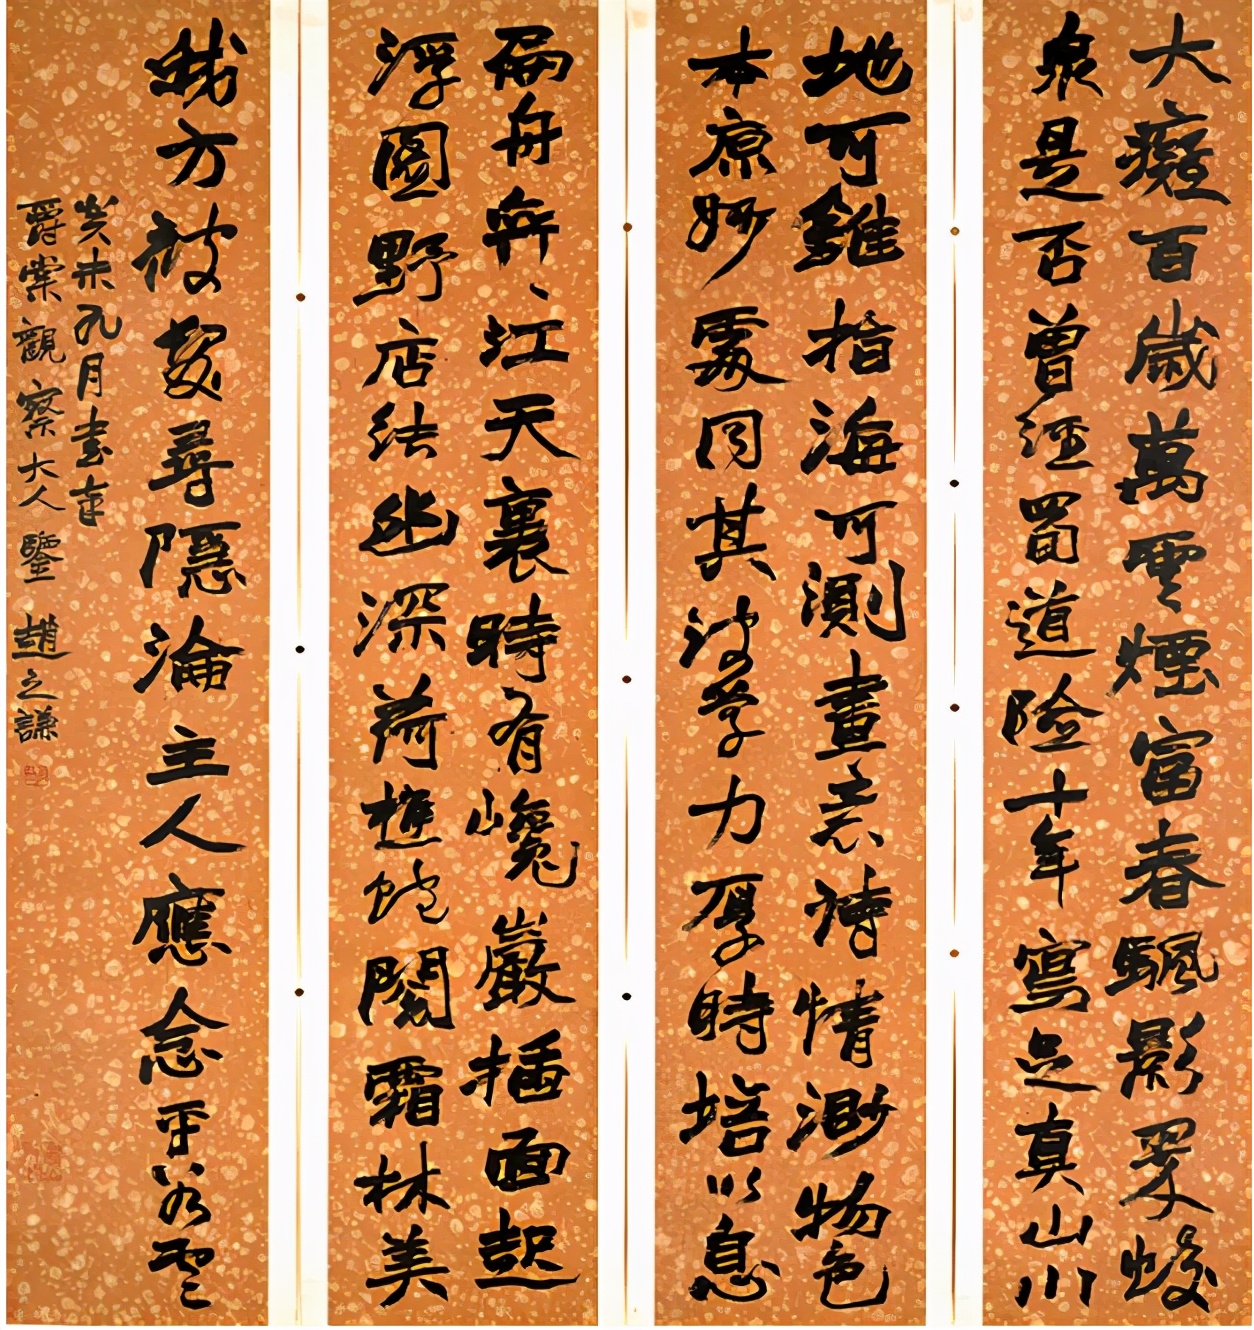 大癡百歲萬雲煙富春颿影翠蛟
泉是否曾經蜀道險十年寫足真山川
地可錐指海可測畫意詩情渺物色
本原妙處同其波學力厚時培以息
扁舟江天裏時有巉巖插面起
浮圖野店結幽深荷樵蛇閣霜林美
我方被髮尋隱淪主人應念平雲
癸未九月書奉
爵棠觀察大人鑒 趙之謙